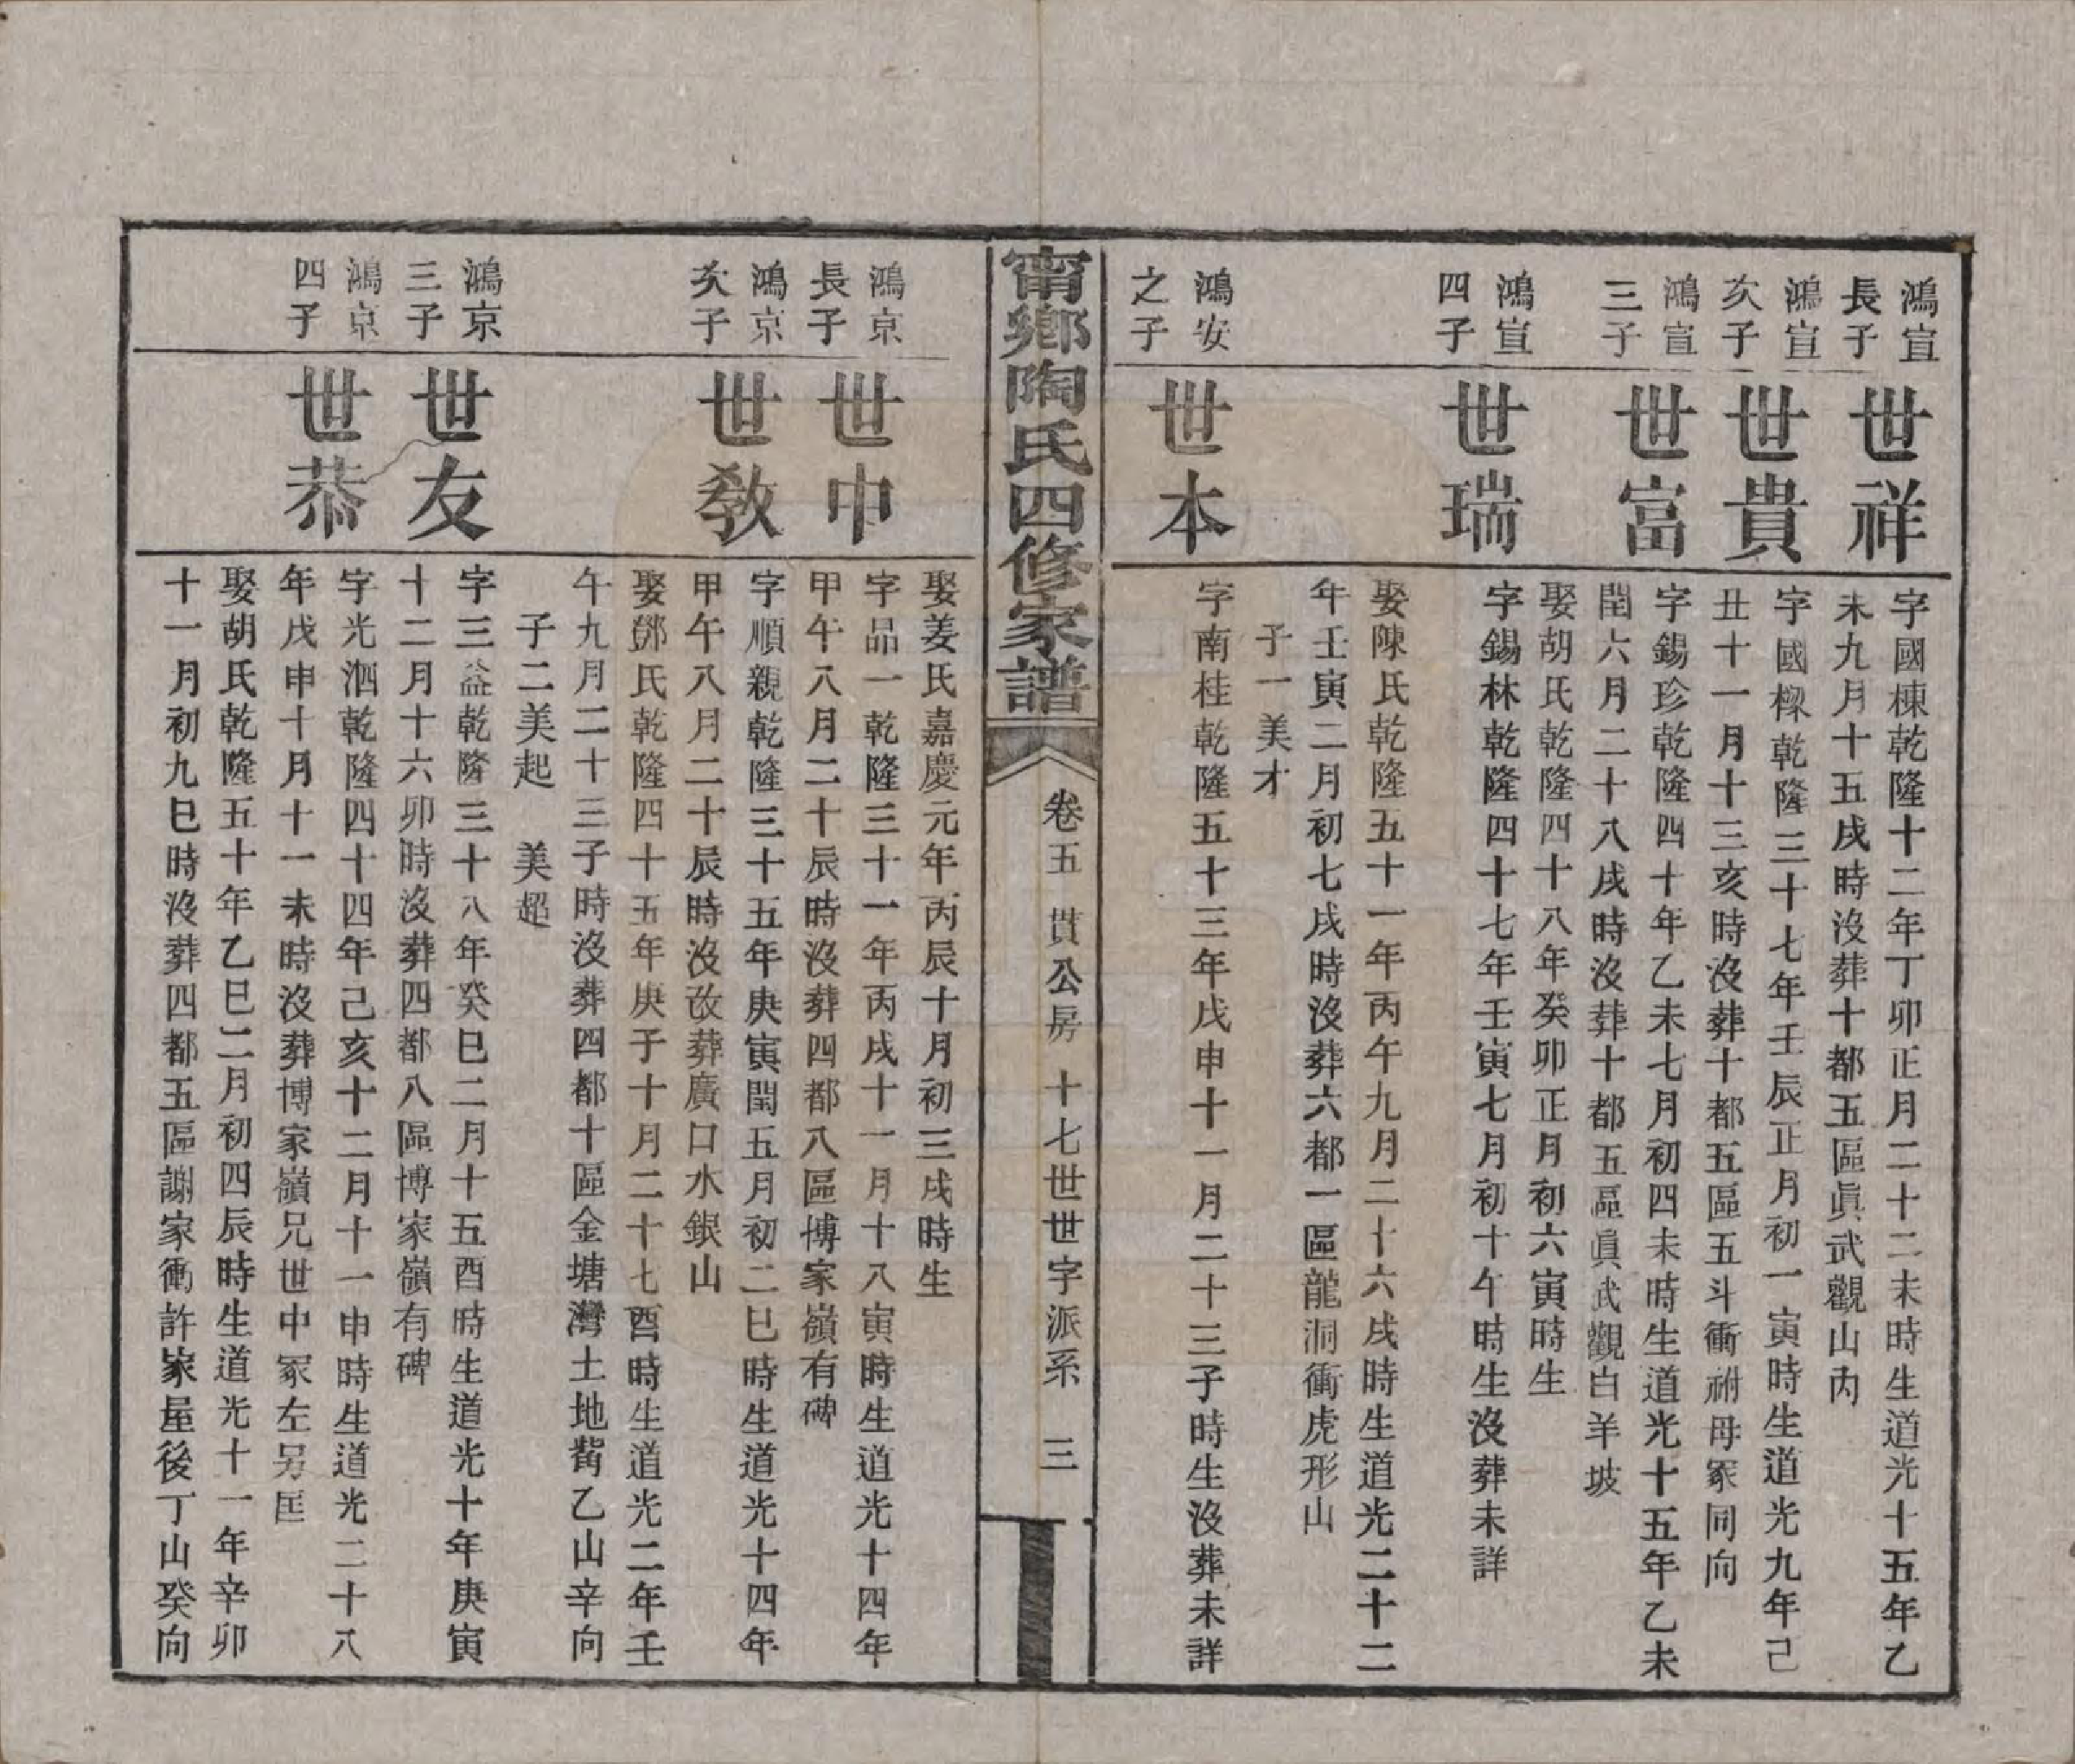 鴻宣
長子
世祥
字國棟乾隆十二年丁卯正月二十二未時生道光十五年乙
未九月十五戌時沒葬十都五區眞武觀山內
鴻宣
次子
世貴
字國樑乾隆三十七年壬辰正月初一寅時生道光九年己
丑十一月十三亥時沒葬十都五區五斗衝祔母冢同向
鴻宣
三子
世富
字錫珍乾隆四十年乙未七月初四未時生道光十五年乙未
閏六月二十八戌時沒葬十都五區眞武觀白羊坡
娶胡氏乾隆四十八年癸卯正月初六寅時生
鴻宣
四子
世瑞
字錫林乾隆四十七年壬寅七月初十午時生沒葬未詳
娶陳氏乾隆五十一年丙午九月二十六戌時生道光二十二
年壬寅二月初七戌時沒葬六都一區龍洞衝虎形山
子一美才
鴻安
之子
世本
字南桂乾隆五十三年戊申十一月二十三子時生沒葬未詳
甯鄉陶氏四修家譜
卷五 貫公房 十七世世字派系 三
娶姜氏嘉慶元年丙辰十月初三戌時生
鴻京
長子
世中
字品一乾隆三十一年丙戌十一月十八寅時生道光十四年
甲午八月二十辰時沒葬四都八區博家嶺有碑
鴻京
次子
世敎
字順親乾隆三十五年庚寅閏五月初二巳時生道光十四年
甲午八月二十辰時沒改葬廣口水銀山
娶鄧氏乾隆四十五年庚子十月二十七酉時生道光二年壬
午九月二十三子時沒葬四都十區金塘灣土地觜乙山辛向
子二美起 美超
鴻京
三子
世友
字三益乾隆三十八年癸巳二月十五酉時生道光十年庚寅
十二月十六卯時沒葬四都八區博家嶺有碑
鴻京
四子
世恭
字光泗乾隆四十四年己亥十二月十一申時生道光二十八
年戊申十月十一未時沒葬博家嶺兄世中冢左另匡
娶胡氏乾隆五十年乙巳二月初四辰時生道光十一年辛卯
十一月初九巳時沒葬四都五區謝家衝許家屋後丁山癸向